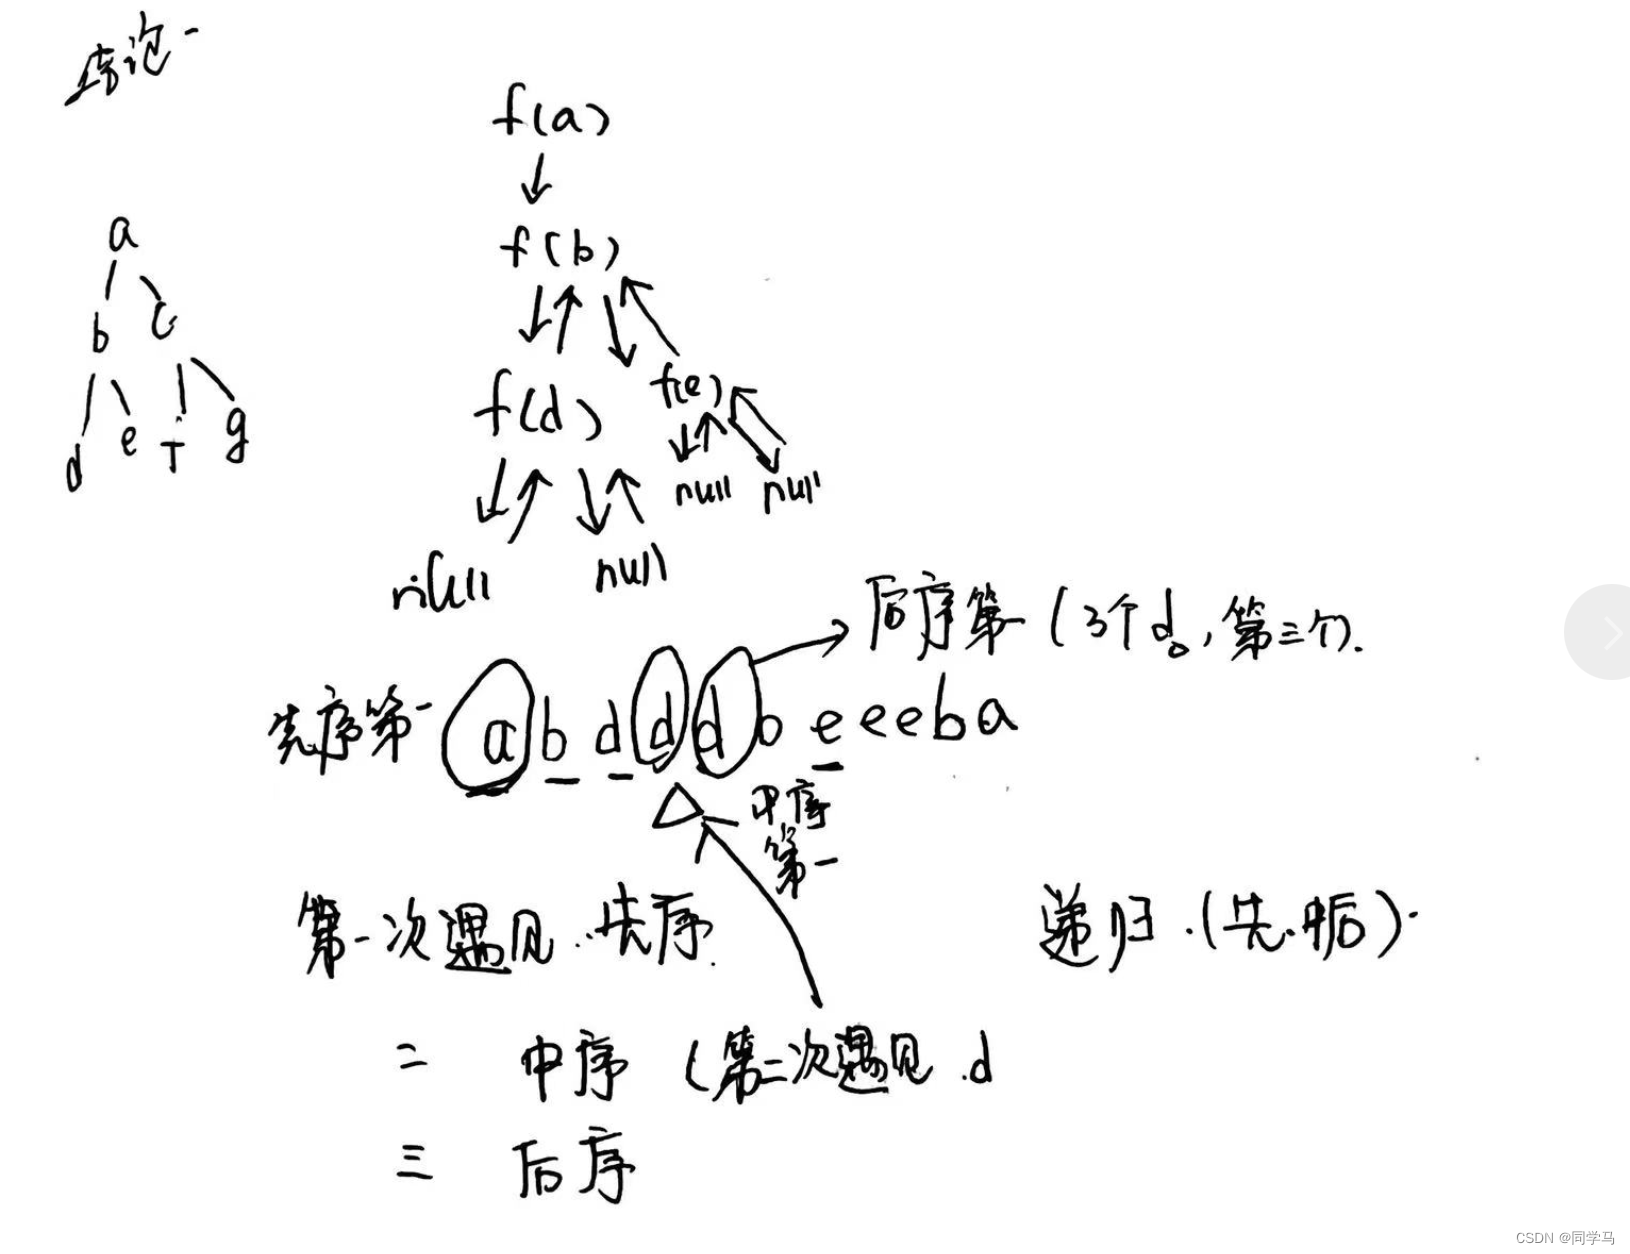 f(a)
f(b)
a
b c
f(d) f(e)
d e f g
null null
null null
后序第一(3个d。,第三个).
先序第一 a b d d d b e e e b a
中序
第一
第一次遇见 先序
递归.(先.中后).
二 中序 (第二次遇见.d
三 后序
CSDN @同学马